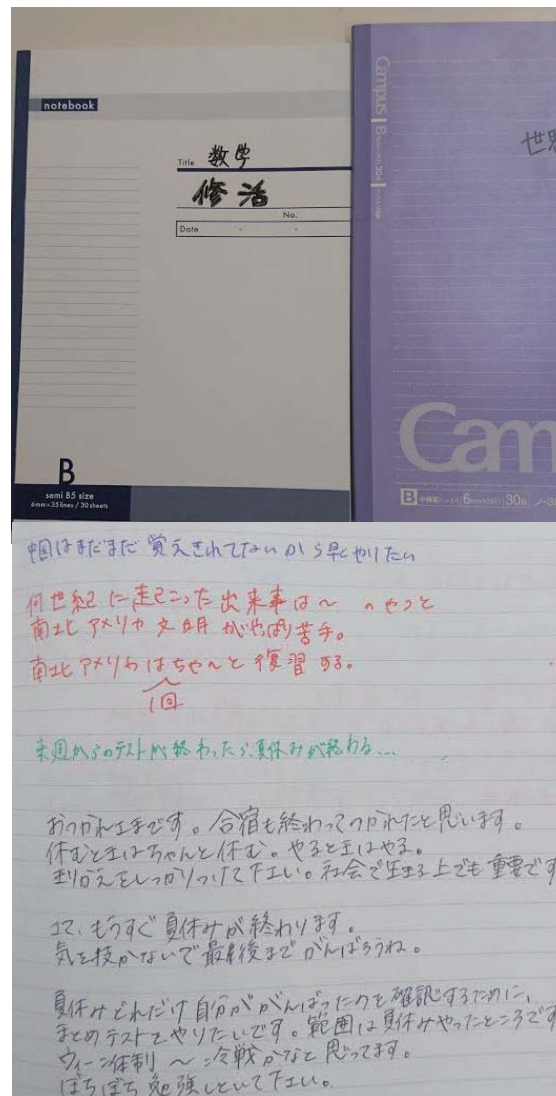 notebook
Title 数学
修活
No.
Date
B
semi B5 size
6mm×35lines / 30sheets
Campus
世界
Cam
B 6mm 30
中国はまだまだ覚えきれてないから早くやりたい
何世紀に起こった出来事は〜 のやつと
南北アメリカ文明がやっぱり苦手。
南北アメリカはちゃんと復習する。
1回
来週からのテストが終わったら夏休みが終わる…
おつかれさまです。合宿も終わってつかれたと思います。
休むときはちゃんと休む。やるときはやる。
切りかえをしっかりつけて下さい。社会で生きる上でも重要です
さて、もうすぐ夏休みが終わります。
気を抜かないで最後までがんばろうね。
夏休みどれだけ自分ががんばったのを確認するために、
まとめテストをやりたいです。範囲は夏休みやったところです
ウィーン体制 〜 冷戦かなと思ってます。
ぼちぼち勉強しといて下さい。